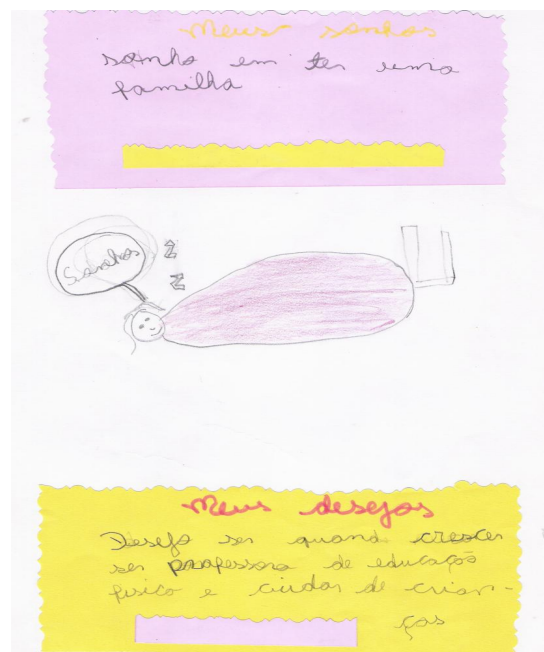 Meus sonhos
sonho em ter uma
familha
Sonhos
Z
Z
Meus desejos
Desejo ser quand crescer
ser professora de educação
fisico e cuidar de crian-
ças